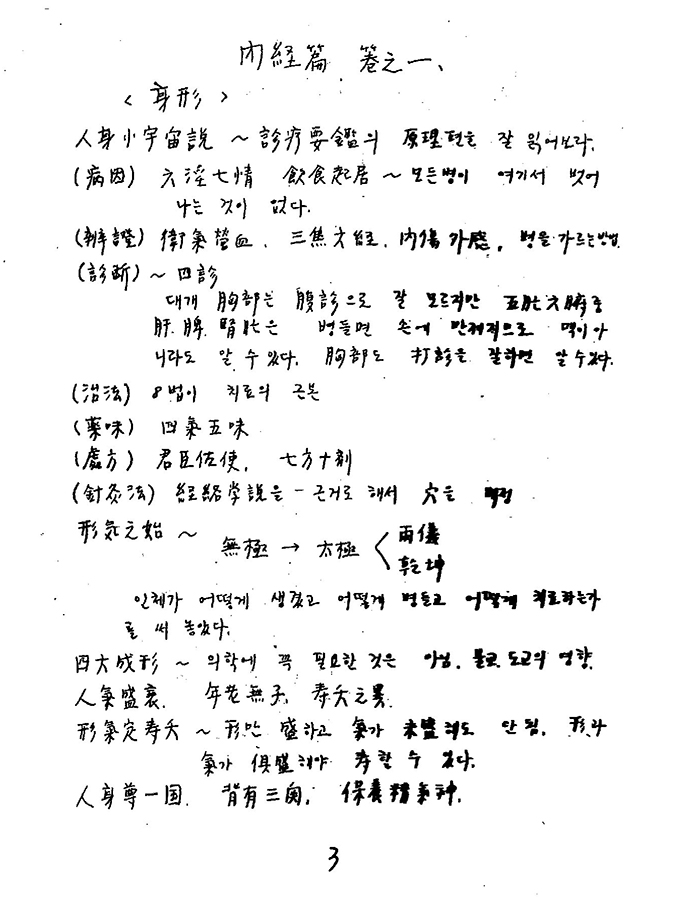 內経篇 卷之一、
< 身形 >
人身小宇宙說 ~ 診療要鑑의 原理편을 잘 읽어보라.
(病因) 六淫七情 飮食起居 ~ 모든병이 여기서 벗어
나는 것이 없다.
(辨證) 衛氣營血. 三焦六經. 內傷外感, 병을 가르는방법.
(診断) ~ 四診
대개 胸部는 腹診으로 잘 모르지만 五臟六腑중
肝. 脾. 腎肚은 병들면 손에 만져적으로 먹이아
니라도 알 수 있다. 胸部도 打診을 잘하면 알수있다.
(治法) 8법이 치료의 근본
(藥味) 四氣五味
(處方) 君臣佐使, 七方十劑
(針灸法) 経絡学說을 - 근거로 해서 穴을
形気之始 ~
無極 → 太極 < 兩儀
乾坤
인체가 어떻게 생겼고 어떻게 병들고 어떻게 치료하는가
를 써 놓았다.
四大成形 ~ 의학에 꼭 필요한 것은 아님. 불교 도교의 영향.
人氣盛衰. 年老無子. 寿夭之異.
形氣定寿夭 ~ 형만 盛하고 氣가 未盛해도 안 됨. 形과
氣가 俱盛해야 寿할 수 있다.
人身尊一国. 背有三関. 保養精氣神.
3